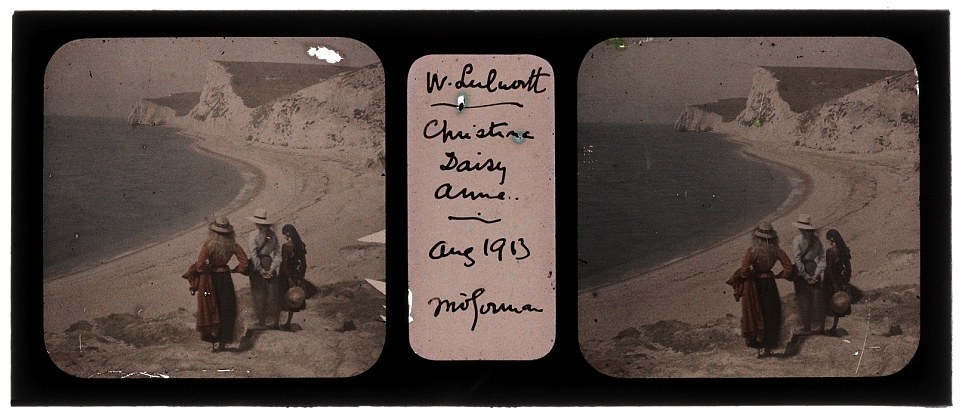 W. Lulworth
Christina
Daisy
Anne..
Aug 1913
M O'Gorman